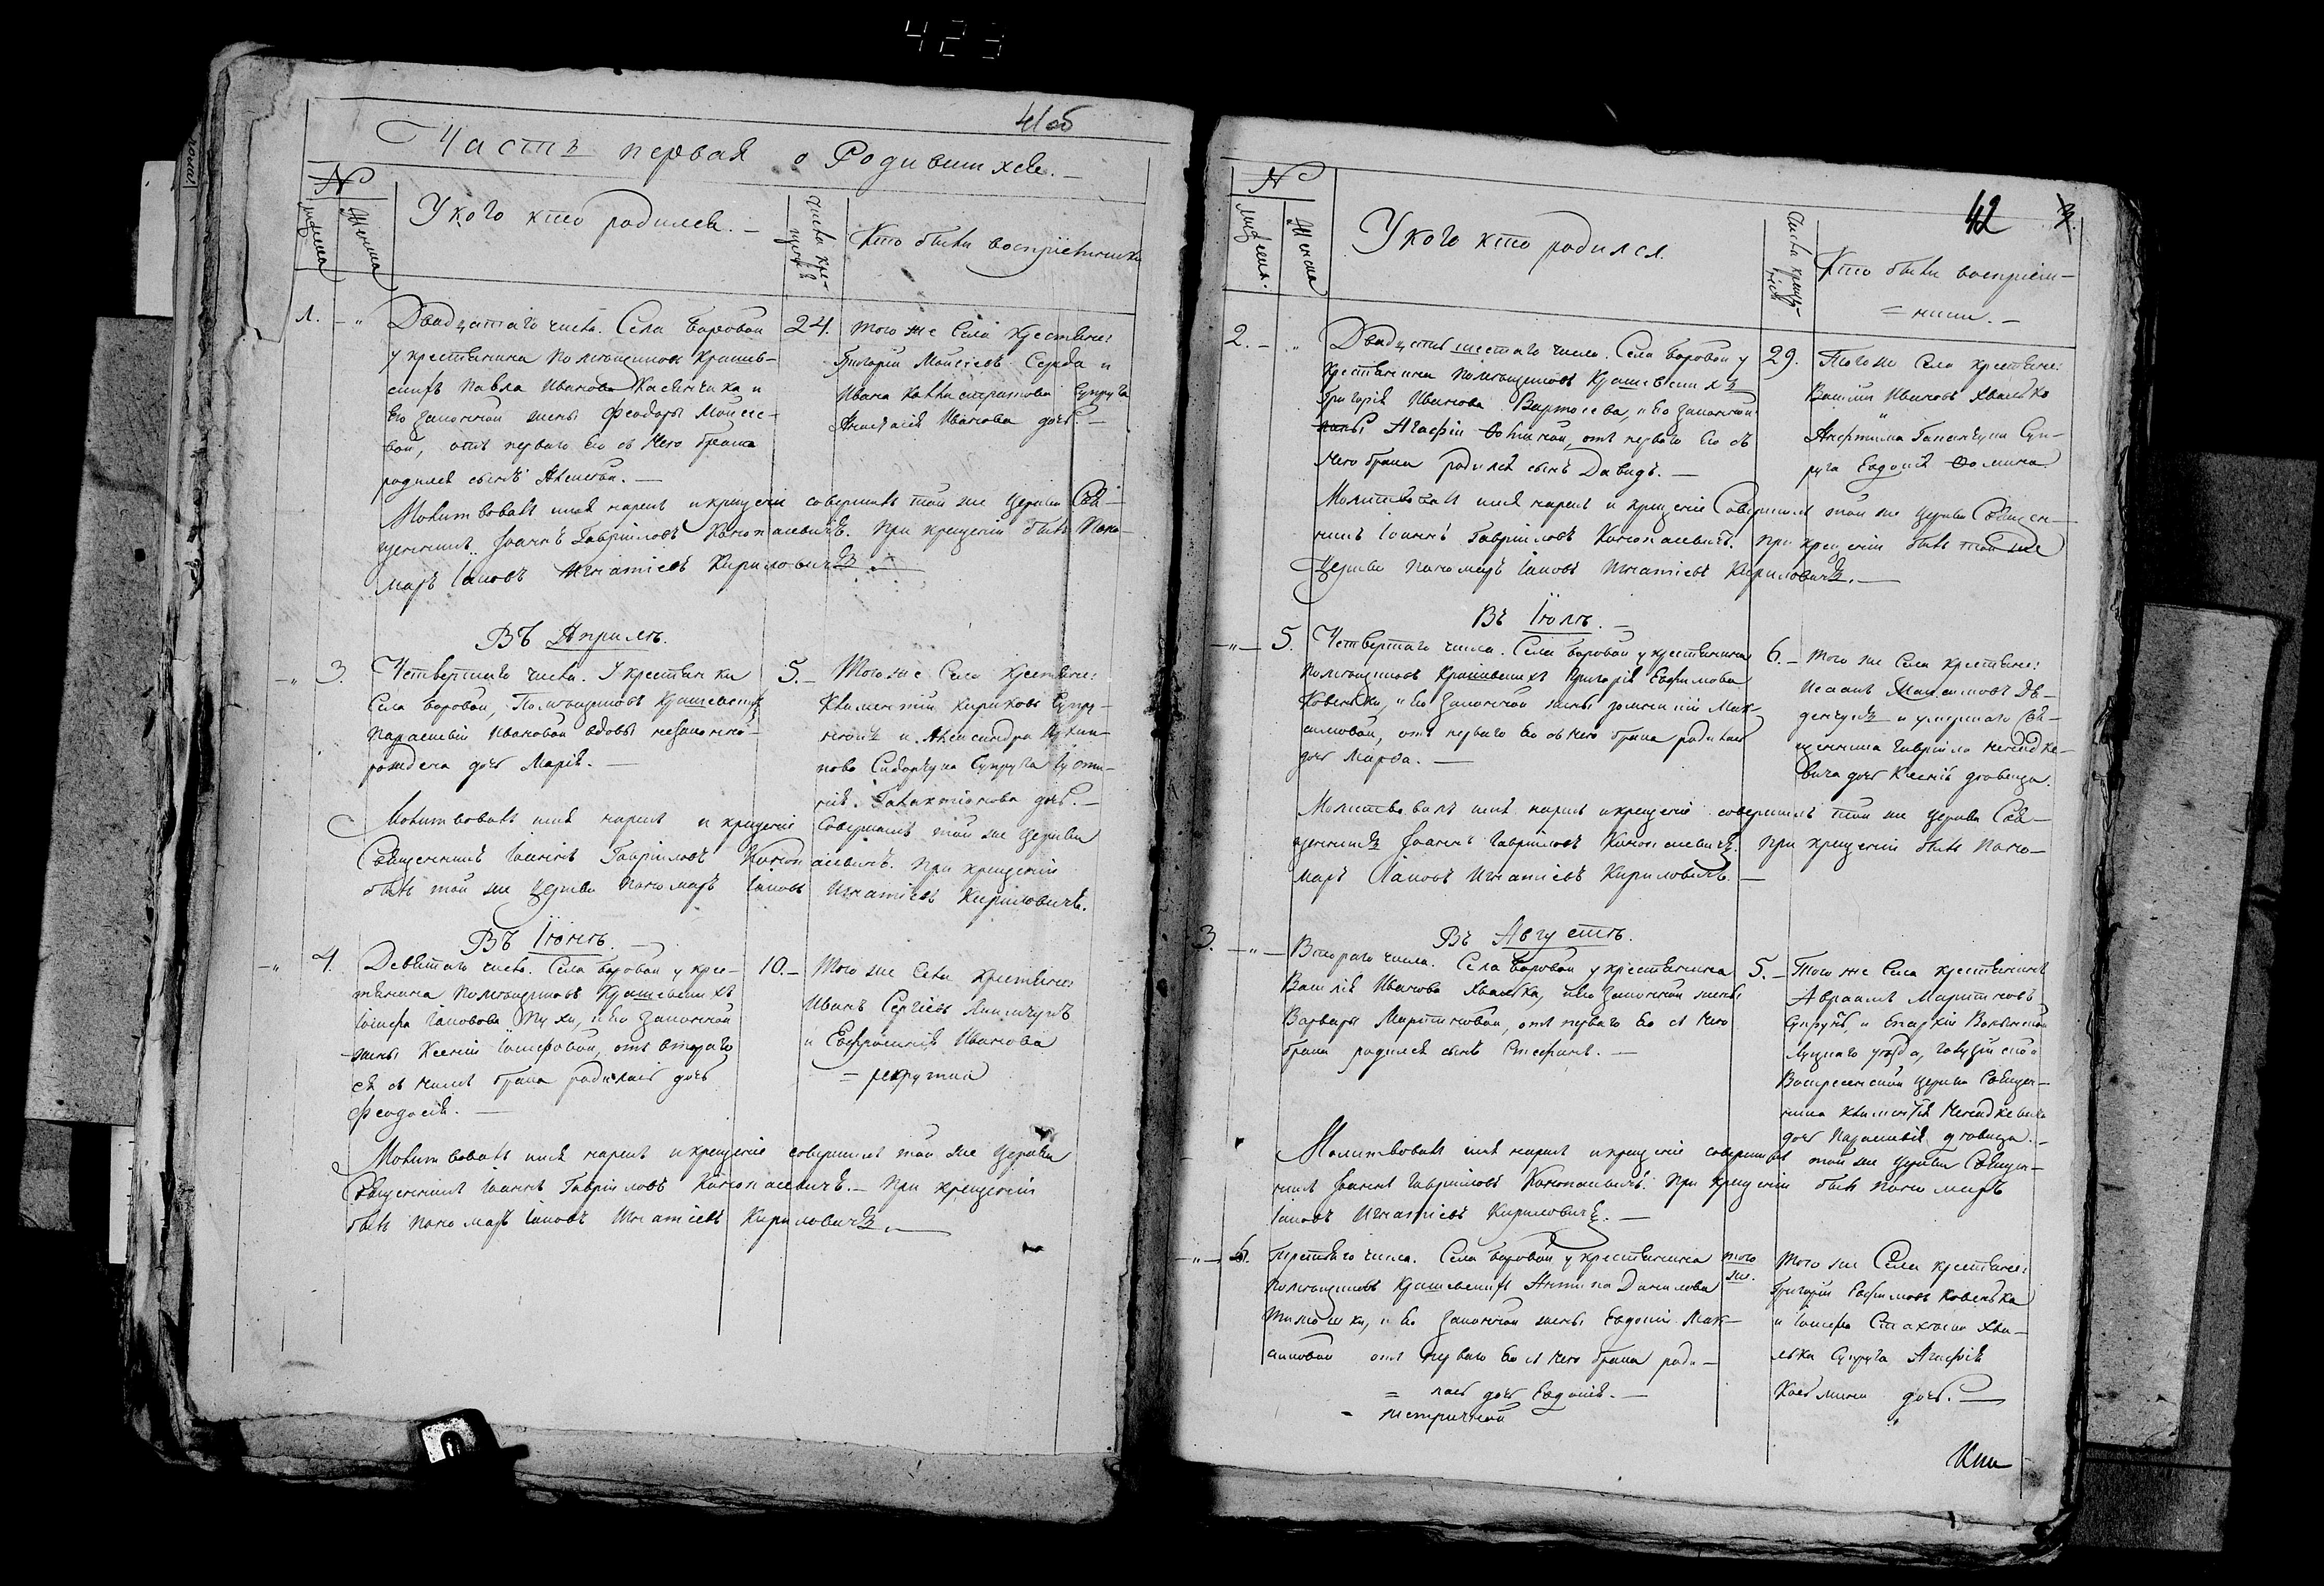 423
41об
Часть первая о Родившихся. —
№
мужеска
Женска
У кого кто родился. —
Числа крещенія
Кто были воспріемники
1. — „
Двадцатаго числа. Села Боровой
у крестьянина Помѣщиковъ Крашев-
скихъ Павла Иванова и
его законной жены Феодоры Моисее-
вой, отъ перваго его съ нею брака
родился сынъ Алексѣй. —
24.
того же Села крестьяне:
Григорій Моисеевъ Середа и
Ивана Каллистратова Супруга
Анастасія Иванова дочь. —
Молитвовалъ имя нарекъ и крещеніе совершилъ той же Церкви Свя-
щенникъ Іоаннъ Гавріиловъ Конопасевичъ. При крещеніи былъ Поно-
марь Іаковъ Игнатіевъ Кириловичъ. —
Въ Апрѣлѣ.
— „ 3.
Четвертаго числа. У крестьянки
Села Боровой, Помѣщиковъ Крашевскихъ
Параскевіи Ивановой вдовы незаконно-
рождена дочь Марія. —
5. —
Того же Села Крестьяне:
Климентій Кириковъ Супру-
и Александра
Супруга Іусти-
нія Галактіонова дочь. —
Молитвовалъ имя нарекъ и крещеніе совершилъ той же Церкви
Священникъ Іоаннъ Гавріиловъ Конопасевичъ. При крещеніи
былъ той же Церкви Пономарь Іаковъ Игнатіевъ Кириловичъ.
Въ Іюнѣ. —
— „ 4.
Девятаго числа. Села Боровой у крес-
тьянина Помѣщиковъ Крашевскихъ
Іосифа Іаковова и его законной
жены Ксеніи Іосифовой, отъ втораго
ея съ нимъ брака родилась дочь
Феодосія. —
10. —
Того же Села крестьяне:
Иванъ Сергіевъ
и Евфросинія Иванова
= рекрутка
Молитвовалъ имя нарекъ и крещеніе совершилъ той же Церкви
Священникъ Іоаннъ Гавріиловъ Конопасевичъ. — При крещеніи
былъ Пономарь Іаковъ Игнатіевъ Кириловичъ. —
42
3.
№
мужеска.
Женска
У кого кто родился.
Числа крещенія
Кто были воспріем-
= ники. —
2. — „
Двадцать шестаго числа. Села Боровой у
крестьянина Помѣщиковъ Крашевскихъ
Григорія Иванова и его законной
жены Агафіи Фоминой, отъ перваго его съ
нею брака родился сынъ Давидъ. —
29.
Того же Села крестьяне:
Василій Ивановъ Хвалько
Супруга Евдокія Фомина
Молитвовалъ имя нарекъ и крещеніе Совершилъ той же Церкви Священ-
никъ Іоаннъ Гавріиловъ Конопасевичъ. При крещеніи былъ той же
Церкви Пономарь Іаковъ Игнатіевъ Кириловичъ. —
Въ Іюлѣ. —
— „ — 5.
Четвертаго числа. Села Боровой у крестьянина
Помѣщиковъ Крашевскихъ Григорія Евфимова
Ковенька, и его законной жены Мак-
симовой, отъ перваго его съ нею брака родилась
дочь Марфа. —
6. —
Того же Села крестьяне:
Исаакъ Максимовъ
и умершаго Свя-
щенника Гавріила
дочь Ксенія дѣвица.
Молитвовалъ имя нарекъ и крещеніе совершилъ той же Церкви Свя-
щенникъ Іоаннъ Гавріиловъ Конопасевичъ. При крещеніи былъ Поно-
марь Іаковъ Игнатіевъ Кириловичъ. —
Въ Августѣ.
3. — „ —
Втораго числа. Села Боровой у крестьянина
Василія Иванова Хвалька, и его законной жены
Варвары Мартиновой, отъ перваго его съ нею
брака родился сынъ Стефанъ. —
5. —
Того же Села крестьянинъ
Авраамъ Мартиновъ
Супрунъ, и Епархіи Волынской
Луцкаго уѣзда,
Воскресенской Церкви Священ-
ника Климентія
дочь Параскевія дѣвица. —
Молитвовалъ имя нарекъ и крещеніе совершилъ той же Церкви Священ-
никъ Іоаннъ Гавріиловъ Конопасевичъ. При крещеніи былъ Пономарь
Іаковъ Игнатіевъ Кириловичъ. —
— „ — 6.
Третьяго числа. Села Боровой у крестьянина
Помѣщиковъ Крашевскихъ Антипа Данилова
Тимошки, и его законной жены Евдокіи Мак-
симовой отъ перваго его съ нею брака роди-
= лась дочь Евдокія. —
того
же.
Того же Села крестьяне:
Григорій Евфимовъ Ковенька
и Іосифа Хва-
лька Супруга Агафія
дочь. —